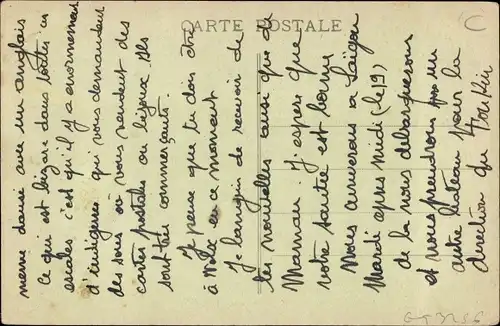 CARTE POSTALE
C
même dansé avec un anglais
ce qui est bizare dans toutes ces
escales c'est qu'il y a énormement
d'indigènes qui vous demandent
des sous ou vous vendent des
cartes postales ou bijoux ils
sont très commerçants.
Je pense que tu dois être
à en ce moment
Je languis de recevoir de
tes nouvelles ainsi que de
Maman. J'espère que
votre santée est bonne
Nous arriverons à Saïgon
Mardi après midi (le 19)
de la nous débarquerons
et nous prendrons un
autre bateau pour la
direction du Tonkin